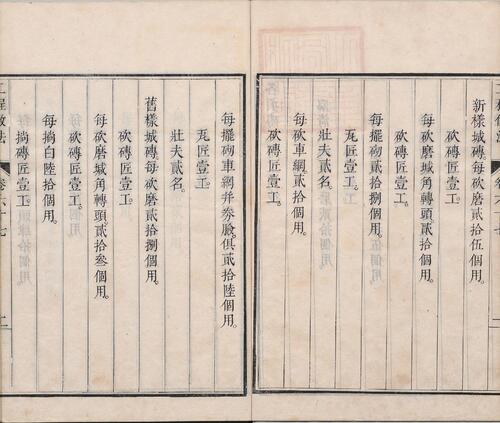 新樣城磚每砍磨貳拾伍個用。
砍磚匠壹工。
每砍磨城角轉頭貳拾個用。
砍磚匠壹工。
每擺砌貳拾捌個用。
瓦匠壹工。
壯夫貳名。
每砍車網貳拾個用。
砍磚匠壹工。
每擺砌車網并劵臉俱貳拾陸個用。
瓦匠壹工。
壯夫貳名。
舊樣城磚每砍磨貳拾捌個用。
砍磚匠壹工。
每砍磨城角轉頭貳拾叁個用。
砍磚匠壹工。
每搧白陸拾個用。
搧磚匠壹工。
卷六十七